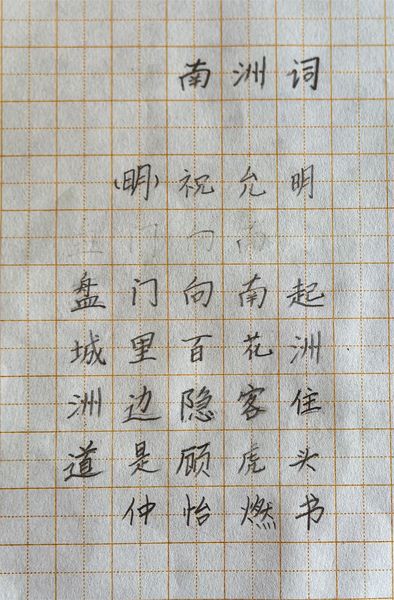 南洲词
(明)祝允明
门向南
盘门向南起
城里百花洲
洲边隐客住
道是顾虎头
仲怡燃书